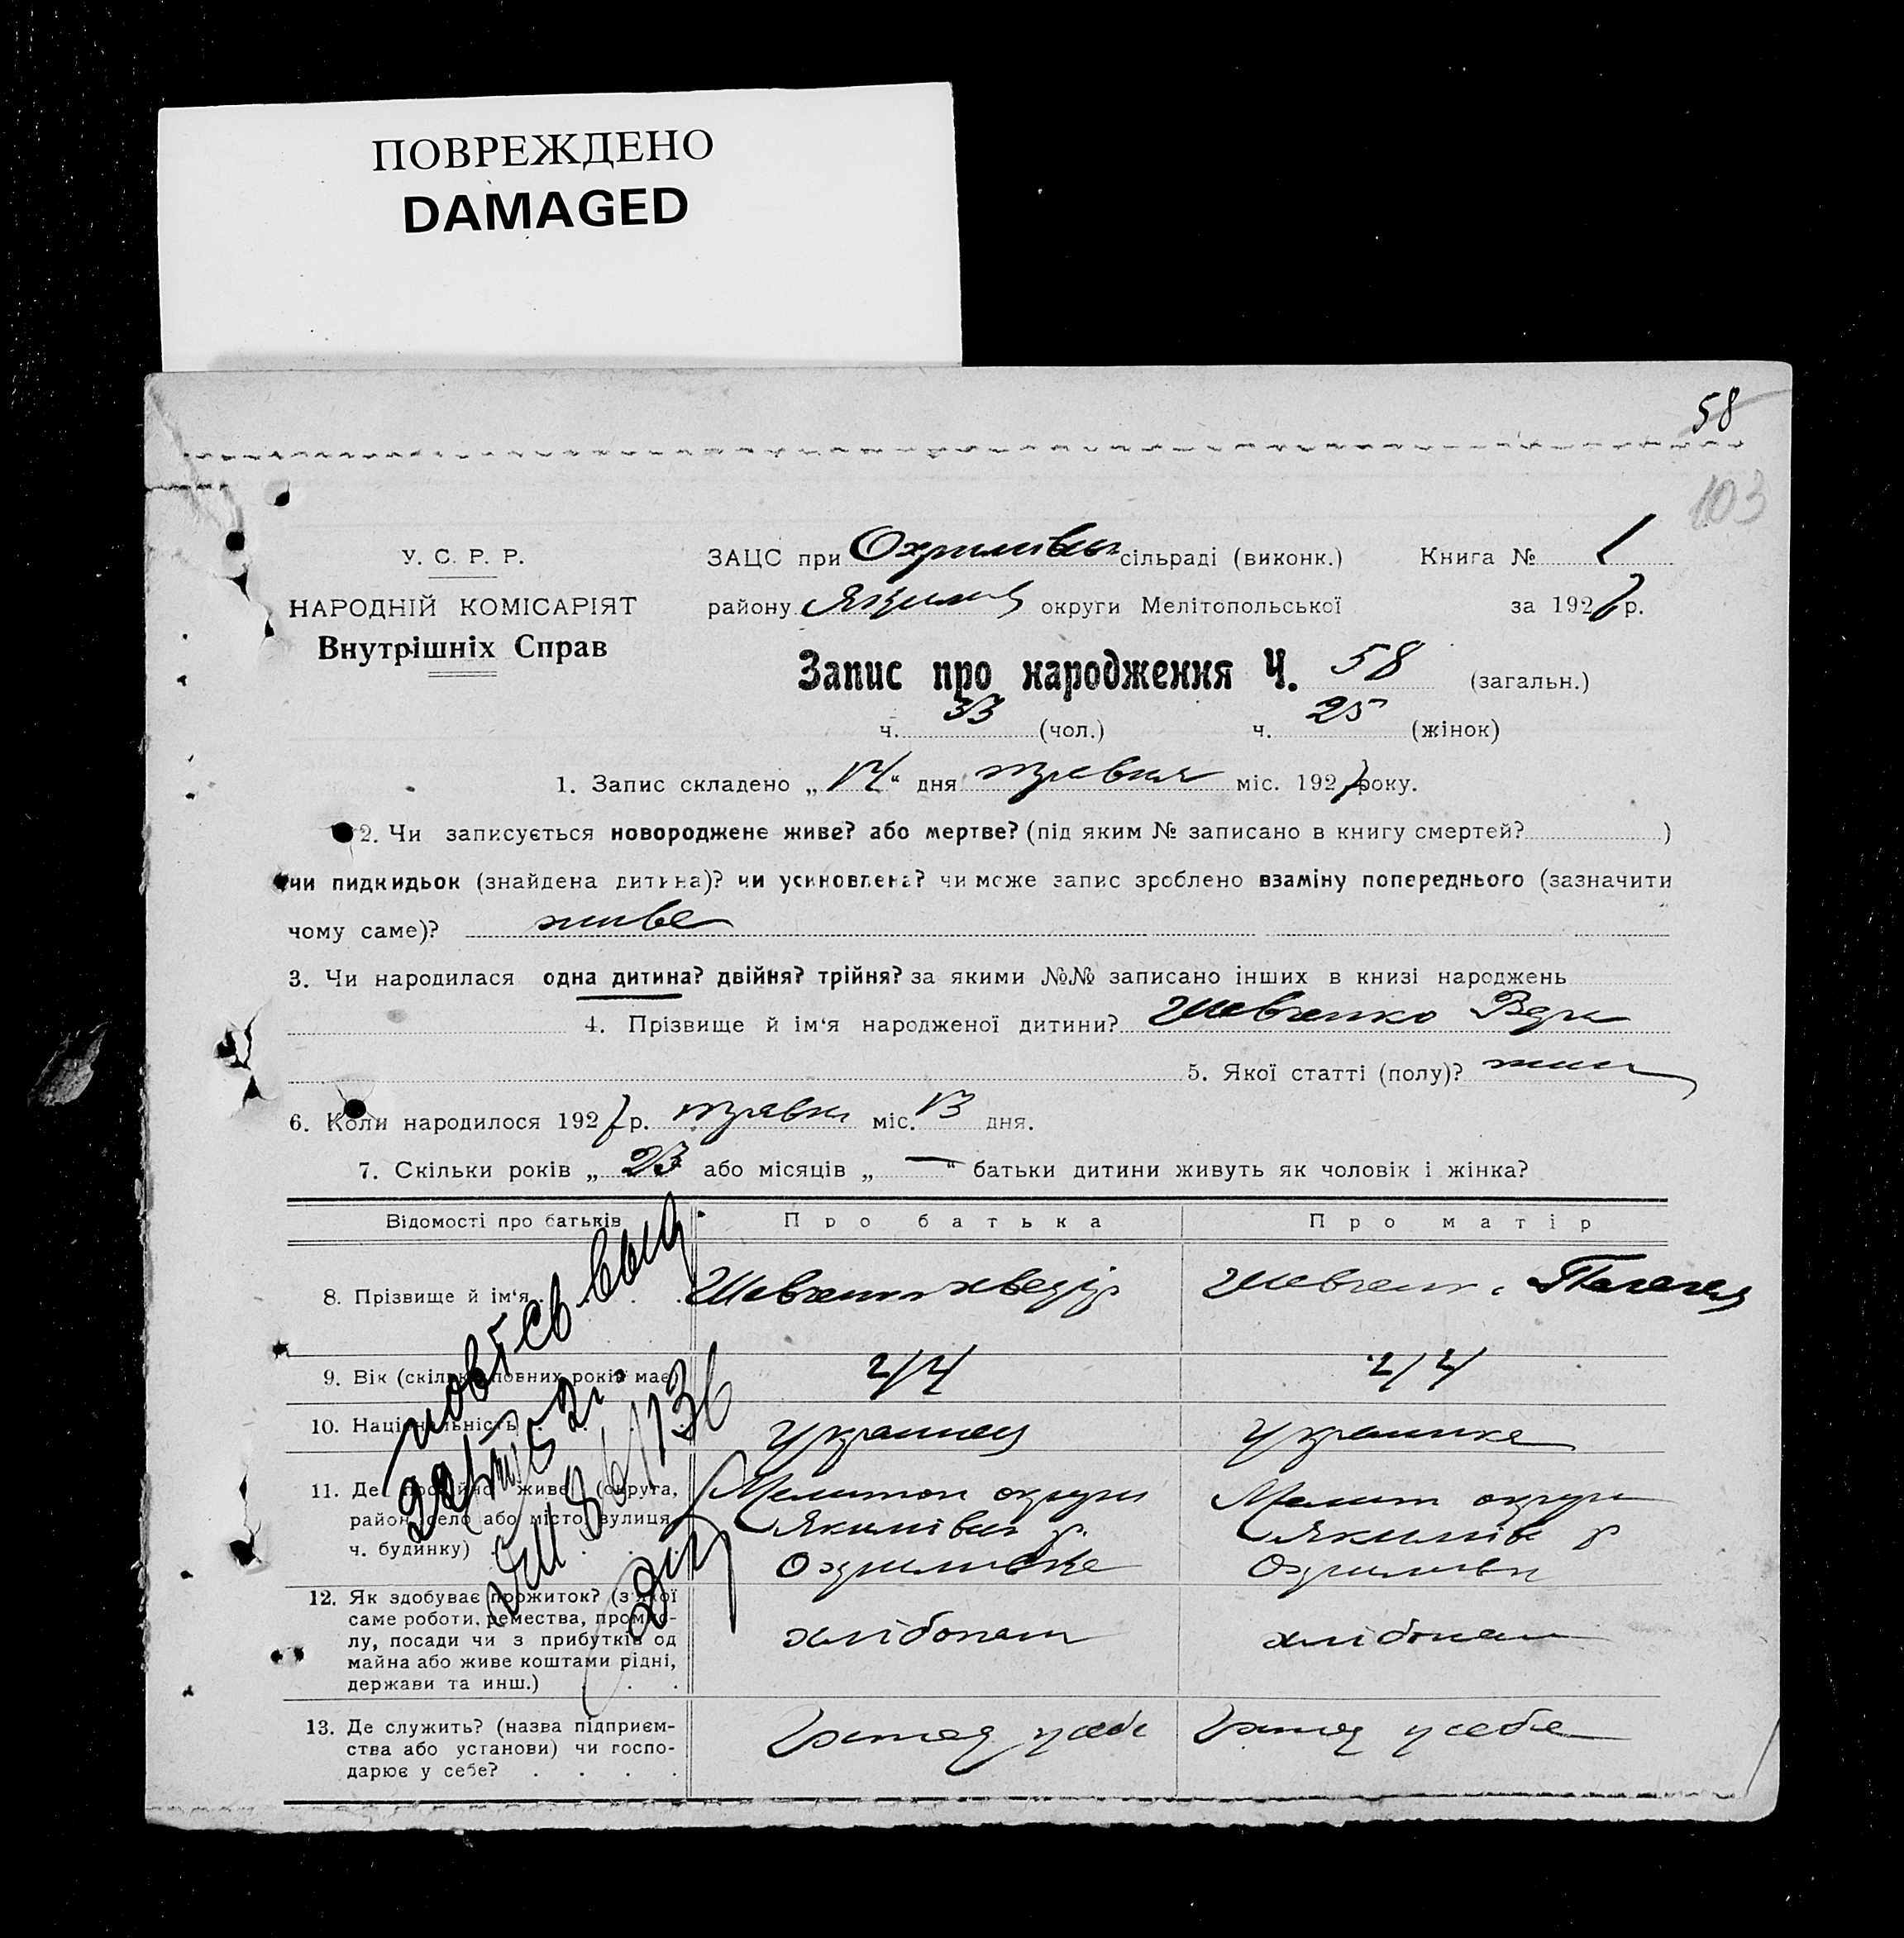 ПОВРЕЖДЕНО
DAMAGED
58
103
У. С. Р. Р.
НАРОДНІЙ КОМІСАРІЯТ
Внутрішніх Справ
ЗАЦС при Охримівськ сільраді (виконк.) Книга № 1
району Якимів округи Мелітопольської за 1927 р.
Запис про народження Ч. 58 (загальн.)
ч. 33 (чол.) ч. 25 (жінок)
1. Запис складено „14“ дня травня міс. 1927 року.
2. Чи записується новороджене живе? або мертве? (під яким № записано в книгу смертей? )
чи пидкидьок (знайдена дитина)? чи усиновлена? чи може запис зроблено взаміну попереднього (зазначити
чому саме)? живе
3. Чи народилася одна дитина? двійня? трійня? за якими №№ записано інших в книзі народжень
4. Прізвище й ім‘я народженої дитини? Шевченко Вера
5. Якої статті (полу)? жін
6. Коли народилося 1927 р. травня міс. 13 дня.
7. Скільки років „23“ або місяців „—“ батьки дитини живуть як чоловік і жінка?
Відомості про батьків Про батька Про матір
8. Прізвище й ім‘я Шевченко Хведір Шевченко Пелагея
9. Вік (скільки повних років має) 44 44
10. Національність украинец украинка
11. Де постійно живе (округа,
район, село або місто, вулиця,
ч. будинку)
Мелитоп округи
Якимівськ р.
Охримовка
Мелит округи
Якимів р
Охримовк
12. Як здобуває прожиток? (з якої
саме роботи, ремества, промис-
лу, посади чи з прибутків од
майна або живе коштами рідні,
держави та инш.)
хлібопаш хлібопаш
13. Де служить? (назва підприєм-
ства або установи) чи госпо-
дарює у себе?
у себе у себе